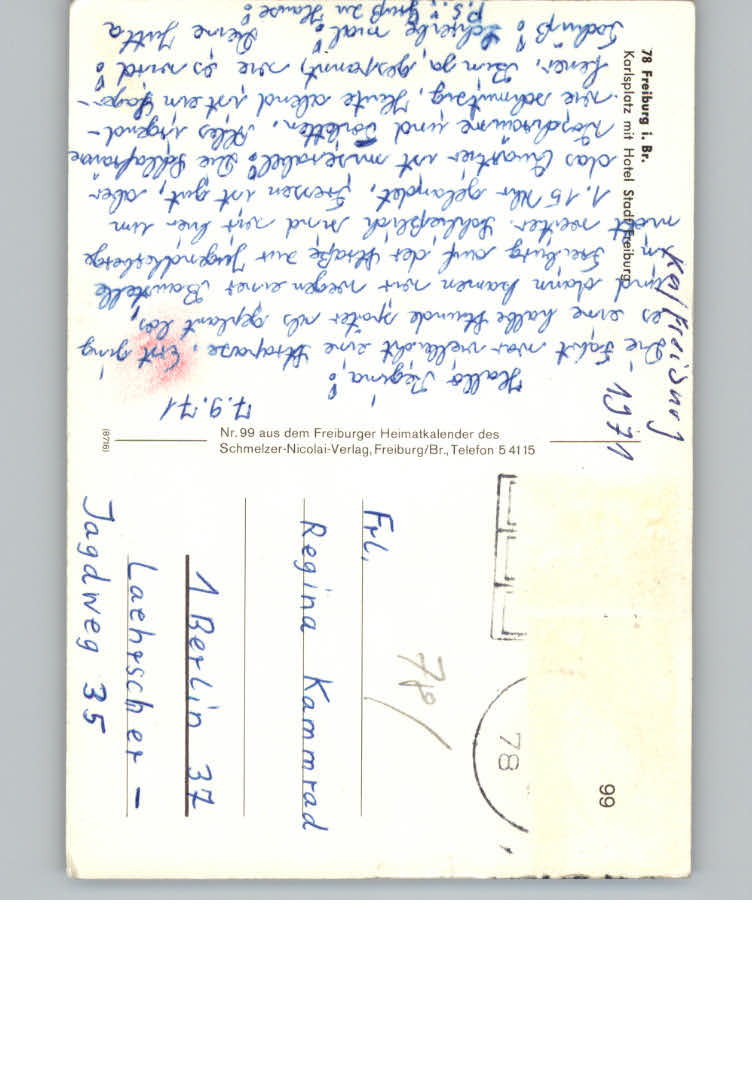 78 Freiburg i. Br.
Karlsplatz mit Hotel Stadt Freiburg
1971
7.9.71
Hallo Regina!
Die Fahrt war vielleicht eine Strapaze. Erst ging
es eine halbe Stunde später als geplant los,
und dann kamen wir wegen einer Baustelle
in Freiburg auf der Straße zur Jugendherberge
nicht weiter. Schließlich sind wir hier um
1.15 Uhr gelandet. Fressen ist gut, aber
das Quartier ist miserabel! Die Schlafräume
Waschräume und Toiletten. Alles irgend-
wie schmutzig. Heute abend ist ein Lager-
feuer. Bin ja gespannt, wie es wird!
Tschüß! Schreibe mal! Deine Jutta
P.S.: Gruß zu Hause!
Nr. 99 aus dem Freiburger Heimatkalender des
Schmelzer-Nicolai-Verlag, Freiburg/Br., Telefon 5 41 15
(8716)
Frl.
Regina Kammrad
1 Berlin 37
Laehrscher -
Jagdweg 35
78
99